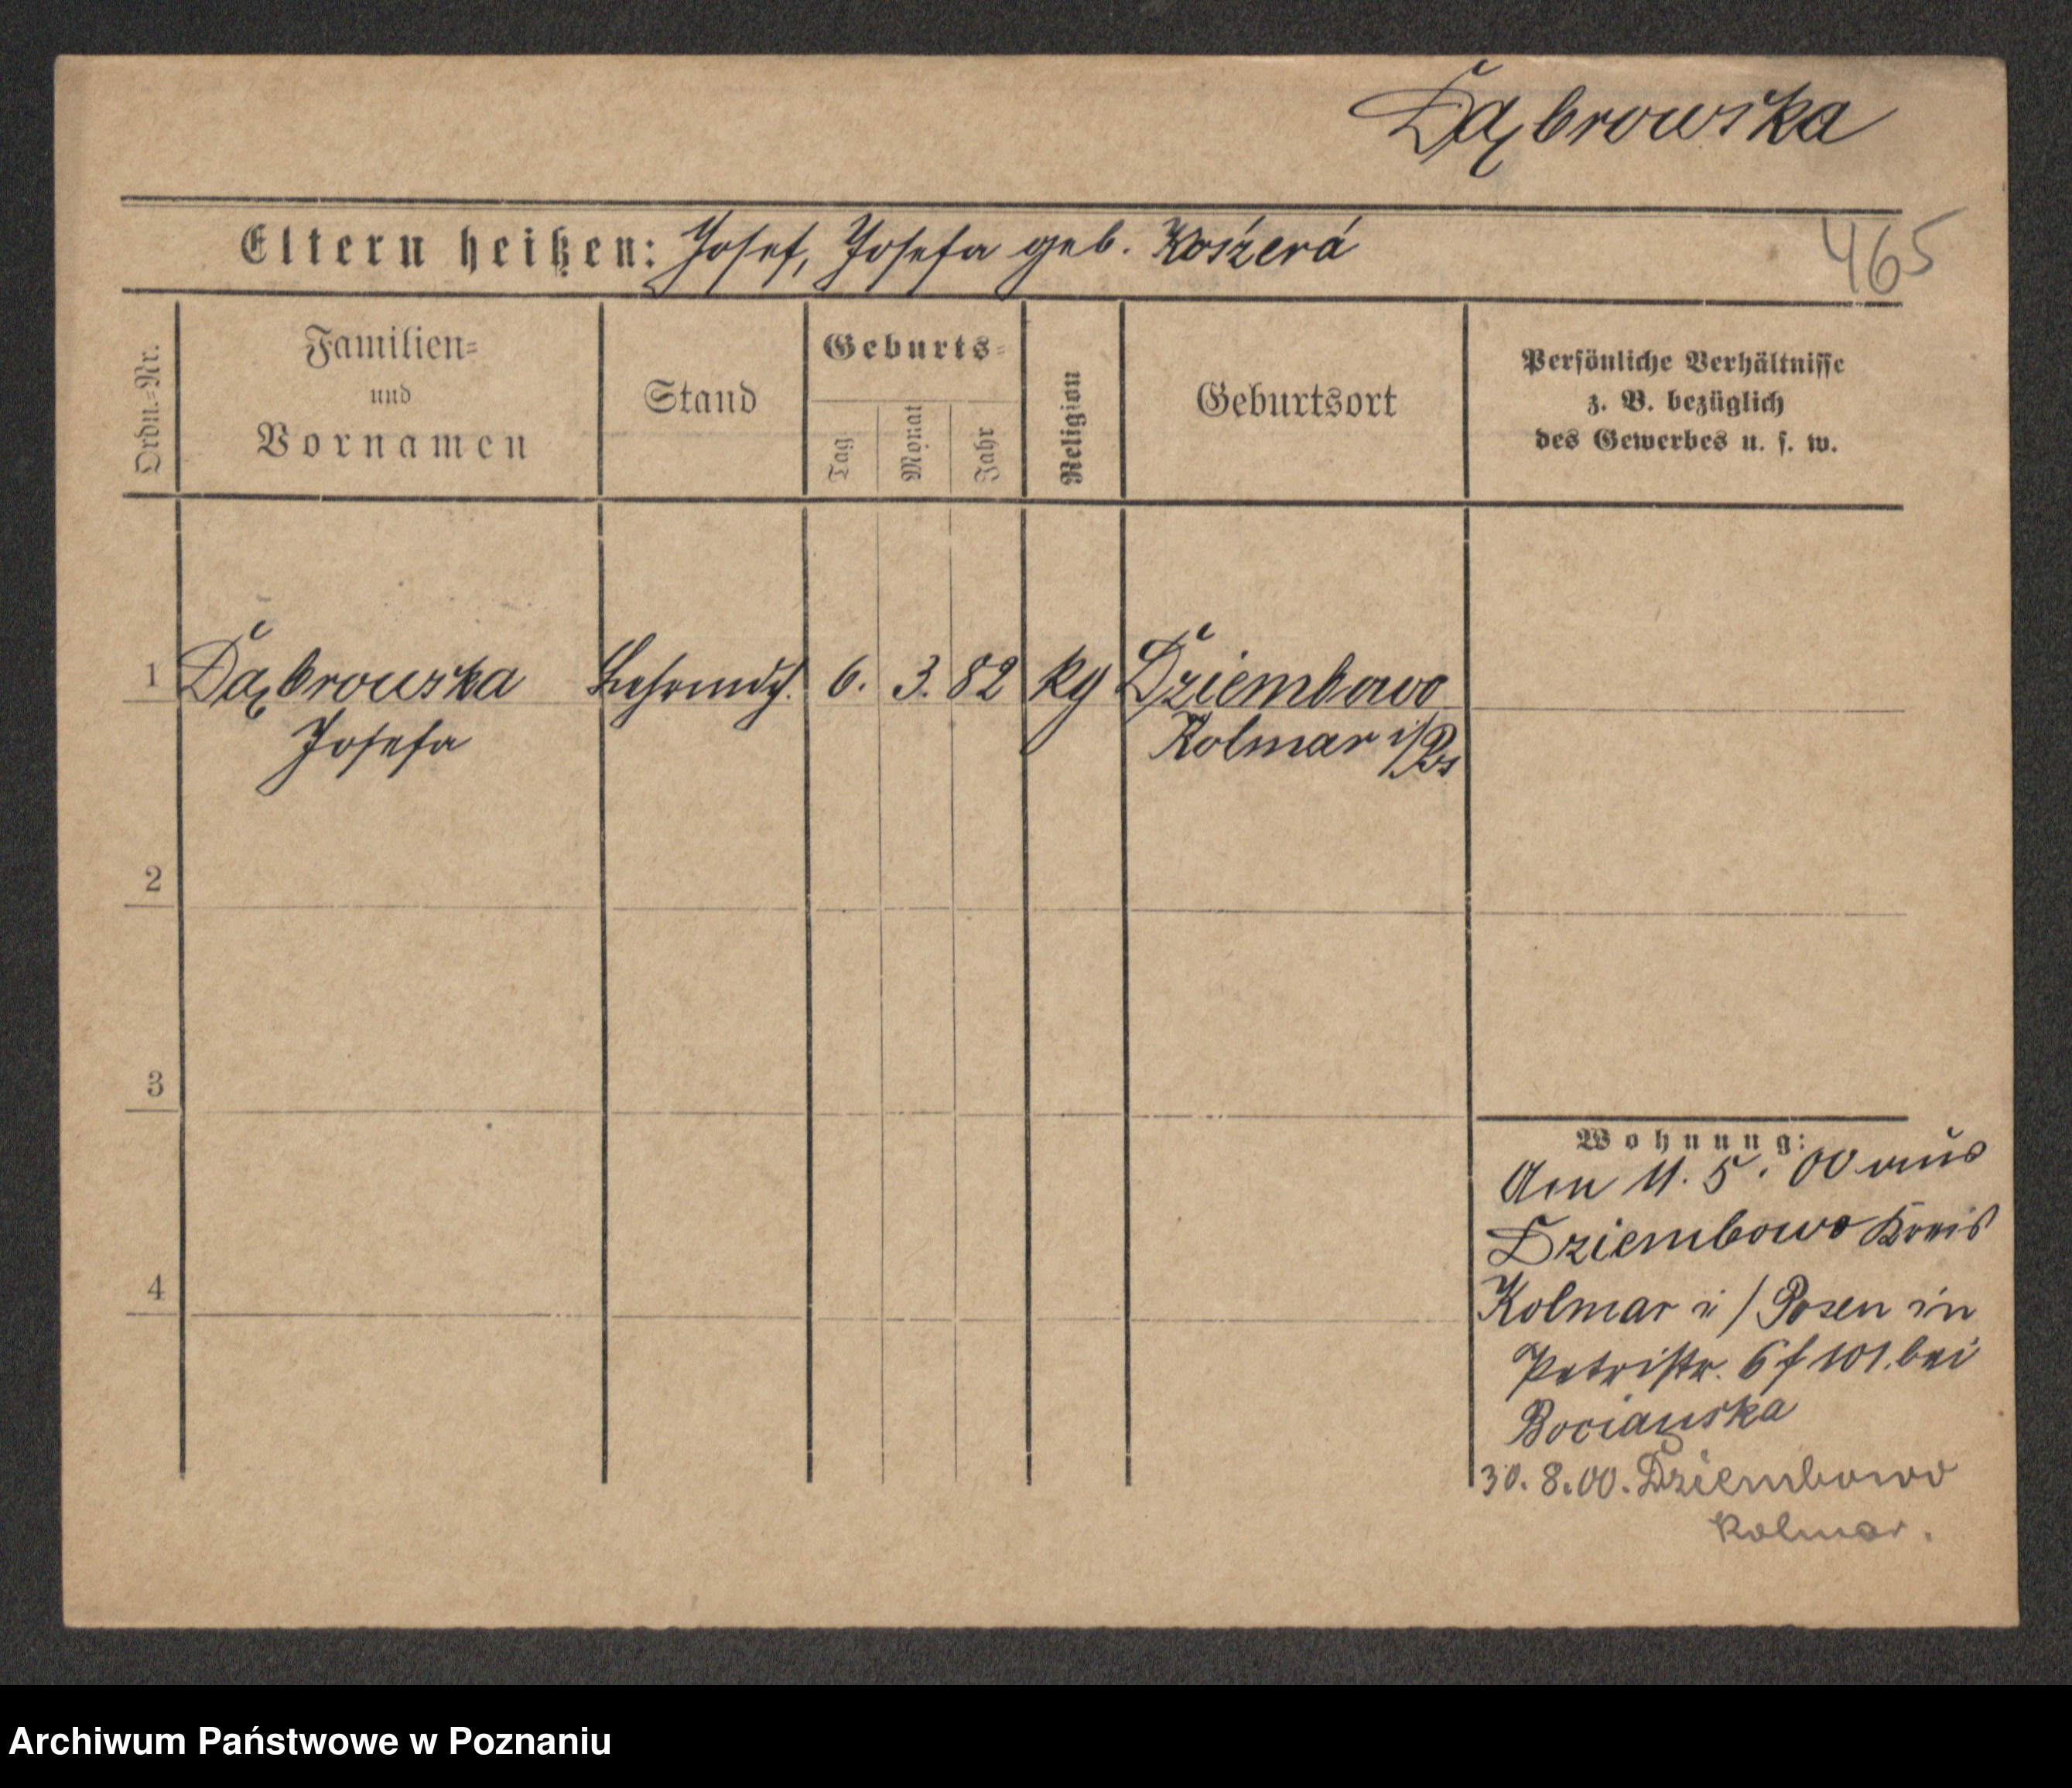 Dąbrowska
Eltern heißen: Josef, Josefa geb. Kośzerá
465
Ordn.-Nr.
Familien-
und
Vornamen
Stand
Geburts-
Tag
Monat
Jahr
Religion
Geburtsort
Persönliche Verhältnisse
z. B. bezüglich
des Gewerbes u. s. w.
1 Dąbrowska Lehrmdch. 6. 3. 82 kg Dziembowo
Josefa Kolmar i/Ps
2
3
4
Wohnung:
Am 11. 5. 00 aus
Dziembowo Kreis
Kolmar i/Posen in
Petristr. 6 f 101. bei
Bocianska
30. 8. 00. Dziembowo
Kolmar.
Archiwum Państwowe w Poznaniu